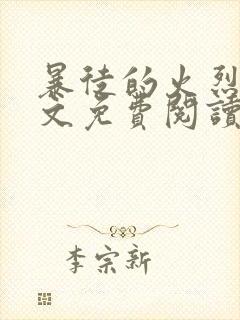 暴徒的火烈
文免費閱讀
李宗新